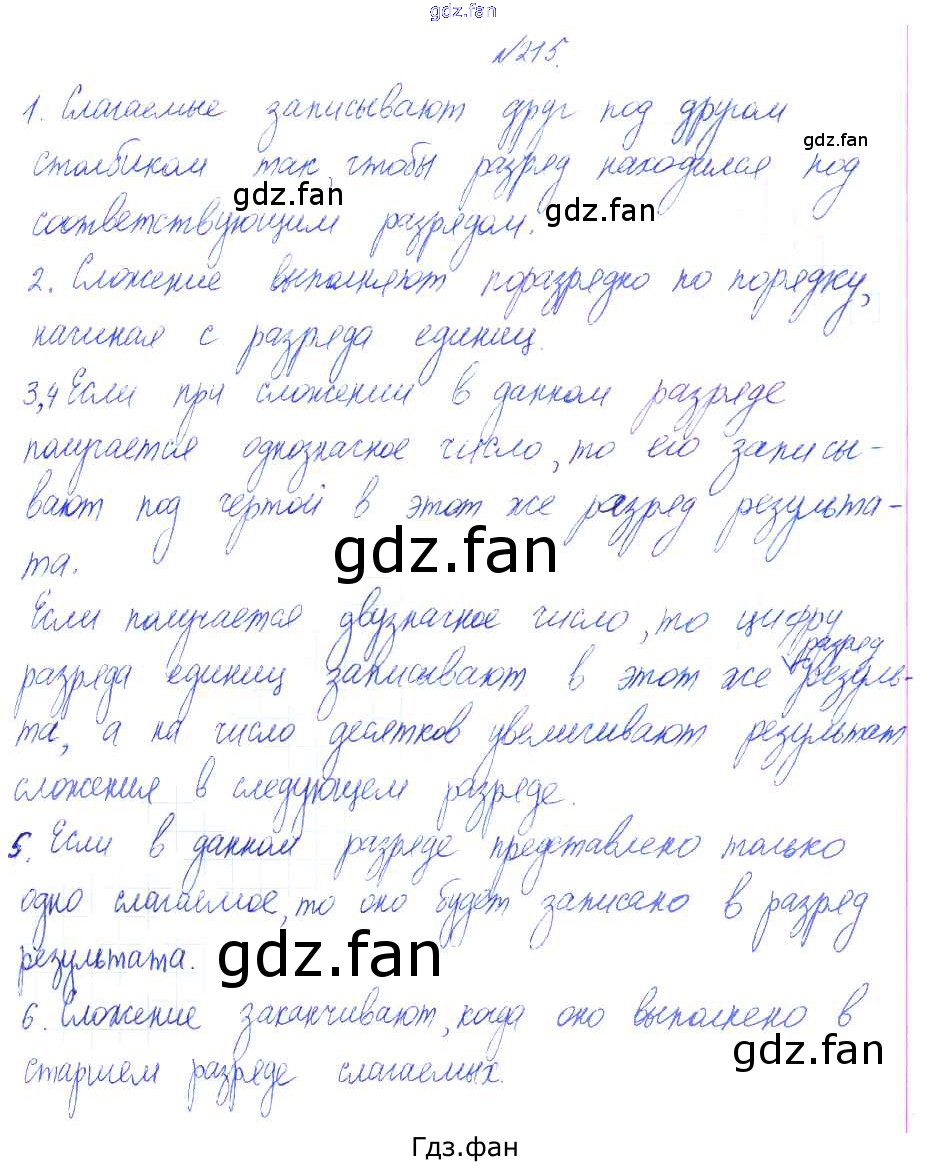 gdz.fan
№215.
1. Слагаемые записывают друг под другом
gdz.fan
столбиком так, чтобы разряд находился под
gdz.fan
gdz.fan
соответствующим разрядом.
2. Сложение выполняют поразрядно по порядку,
начиная с разряда единиц.
3,4 Если при сложении в данном разряде
получается однозначное число, то его записы-
вают под чертой в этот же разряд результа-
gdz.fan
та.
Если получается двузначное число, то цифру
разряд
разряда единиц записывают в этот же резуль-
та, а на число десятков увеличивают результат
сложения в следующем разряде.
5. Если в данном разряде представлено только
одно слагаемое, то оно будет записано в разряд
результата.
gdz.fan
6. Сложение заканчивают, когда оно выполнено в
gdz.fan
старшем разряде слагаемых.
Гдз.фан